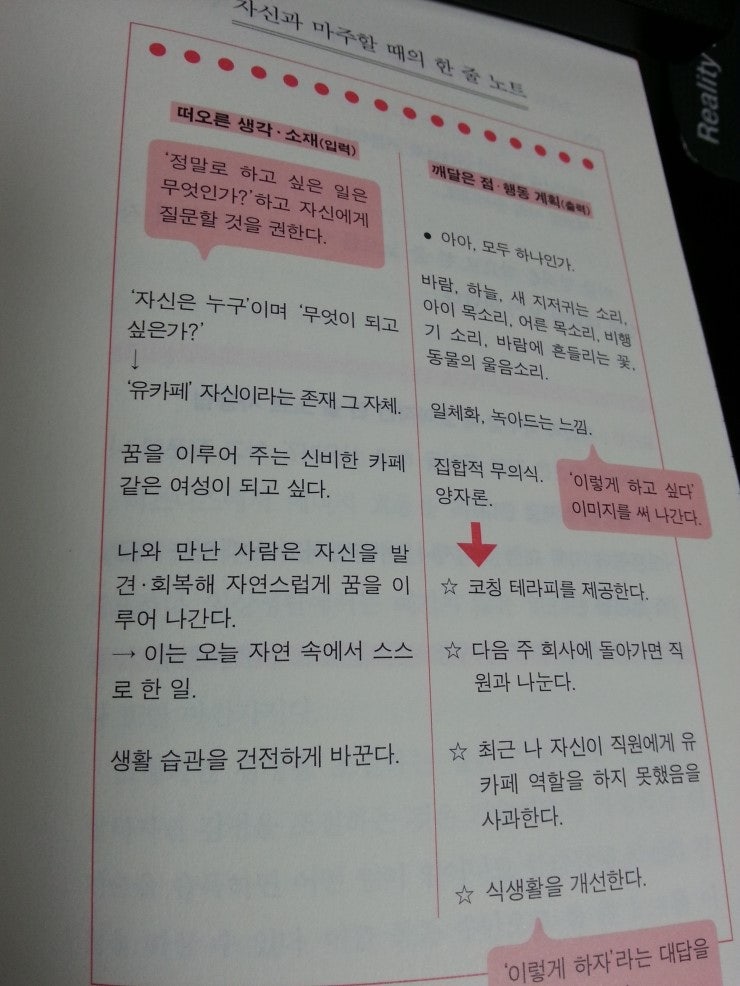 자신과 마주할 때의 한 줄 노트
Reality
떠오른 생각·소재(입력)
'정말로 하고 싶은 일은
무엇인가?'하고 자신에게
질문할 것을 권한다.
'자신은 누구'이며 '무엇이 되고
싶은가?'
↓
'유카페' 자신이라는 존재 그 자체.
꿈을 이루어 주는 신비한 카페
같은 여성이 되고 싶다.
나와 만난 사람은 자신을 발
견·회복해 자연스럽게 꿈을 이
루어 나간다.
→ 이는 오늘 자연 속에서 스스
로 한 일.
생활 습관을 건전하게 바꾼다.
깨달은 점·행동 계획(출력)
• 아아, 모두 하나인가.
바람, 하늘, 새 지저귀는 소리,
아이 목소리, 어른 목소리, 비행
기 소리, 바람에 흔들리는 꽃,
동물의 울음소리.
일체화, 녹아드는 느낌.
집합적 무의식.
양자론.
'이렇게 하고 싶다'
이미지를 써 나간다.
☆ 코칭 테라피를 제공한다.
☆ 다음 주 회사에 돌아가면 직
원과 나눈다.
☆ 최근 나 자신이 직원에게 유
카페 역할을 하지 못했음을
사과한다.
☆ 식생활을 개선한다.
'이렇게 하자'라는 대답을